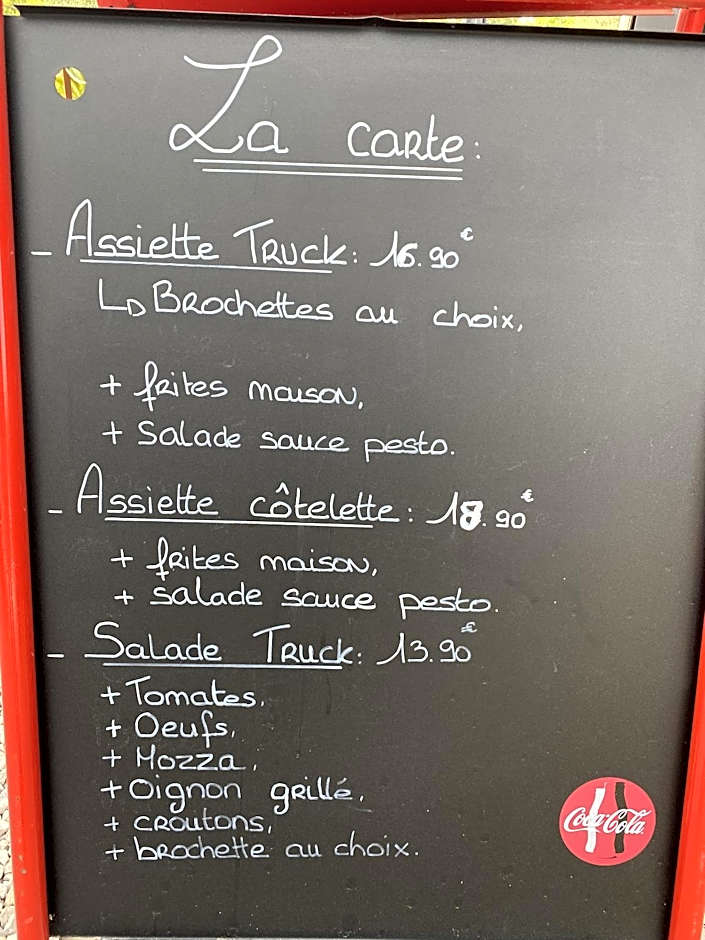 La carte:
- Assiette Truck: 16.90€
Brochettes au choix,
+ frites maison,
+ Salade sauce pesto.
- Assiette côtelette: 18.90€
+ frites maison,
+ salade sauce pesto.
- Salade Truck: 13.90€
+ Tomates,
+ Oeufs,
+ Mozza,
+ Oignon grillé,
+ croutons,
+ brochette au choix.
Coca-Cola